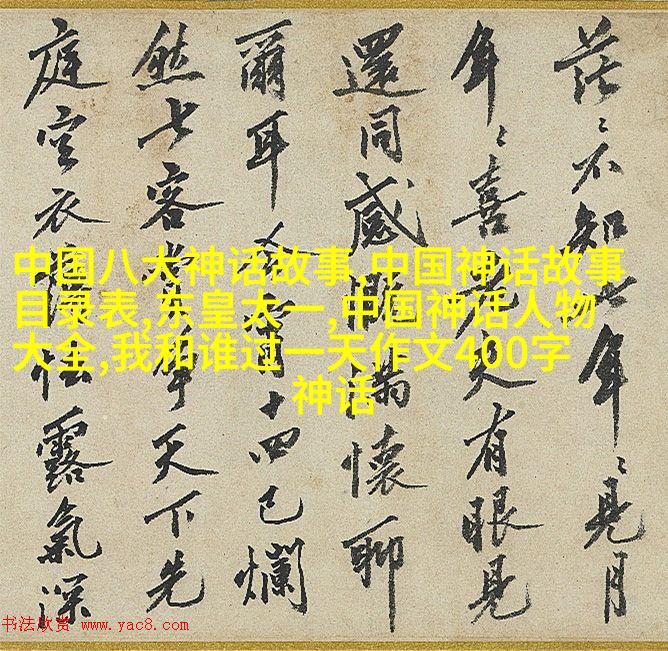 中国八大神话故事,中国神话故事
目录表,东皇太一,中国神话人物
大全,我和谁过一天作文400字
神话
茫〻不知年〻見月
年〻喜天有眼見
還同感慨滿懷聊
爾耳十四已爛
然七客爭天下先
庭空衣怯露氣深
书法欣赏 www.yac8.com